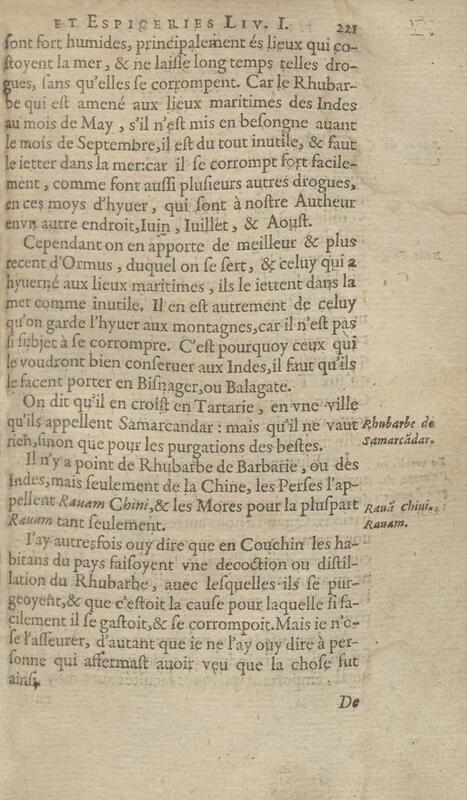 ET ESPICERIES LIV. I. 221
sont fort humides, principalement és lieux qui co-
stoyent la mer, & ne laisse long temps telles dro-
gues, sans qu'elles se corrompent. Car le Rhubar-
be qui est amené aux lieux maritimes des Indes
au mois de May, s'il n'est mis en besongne auant
le mois de Septembre, il est du tout inutile, & faut
le ietter dans la mer: car il se corrompt fort facile-
ment, comme font aussi plusieurs autres drogues,
en ces moys d'hyuer, qui sont à nostre Autheur
envn autre endroit, Iuin, Iuillet, & Aoust.
Cependant on en apporte de meilleur & plus
recent d'Ormus, duquel on se sert, & celuy qui a
hyuerné aux lieux maritimes, ils le iettent dans la
mer comme inutile. Il en est autrement de celuy
qu'on garde l'hyuer aux montagnes, car il n'est pas
si subjet à se corrompre. C'est pourquoy ceux qui
le voudront bien conseruer aux Indes, il faut qu'ils
le facent porter en Bisnager, ou Balagate.
On dit qu'il en croist en Tartarie, en vne ville
qu'ils appellent Samarcandar: mais qu'il ne vaut
Rhubarbe de
rien, sinon que pour les purgations des bestes.
Samarcãdar.
Il n'y a point de Rhubarbe de Barbarie, ou des
Indes, mais seulement de la Chine, les Perses l'ap-
pellent Rauam Chini, & les Mores pour la pluspart
Rauã chini.
Rauam tant seulement.
Rauam.
I'ay autresfois ouy dire que en Couchin les ha-
bitans du pays faisoyent vne decoction ou distil-
lation du Rhubarbe, auec lesquelles ils se pur-
geoyent, & que c'estoit la cause pour laquelle si fa-
cilement il se gastoit, & se corrompoit. Mais ie n'o-
se l'asseurer, d'autant que ie ne l'ay ouy dire à per-
sonne qui affermast auoir veu que la chose fut
ainsi.
De